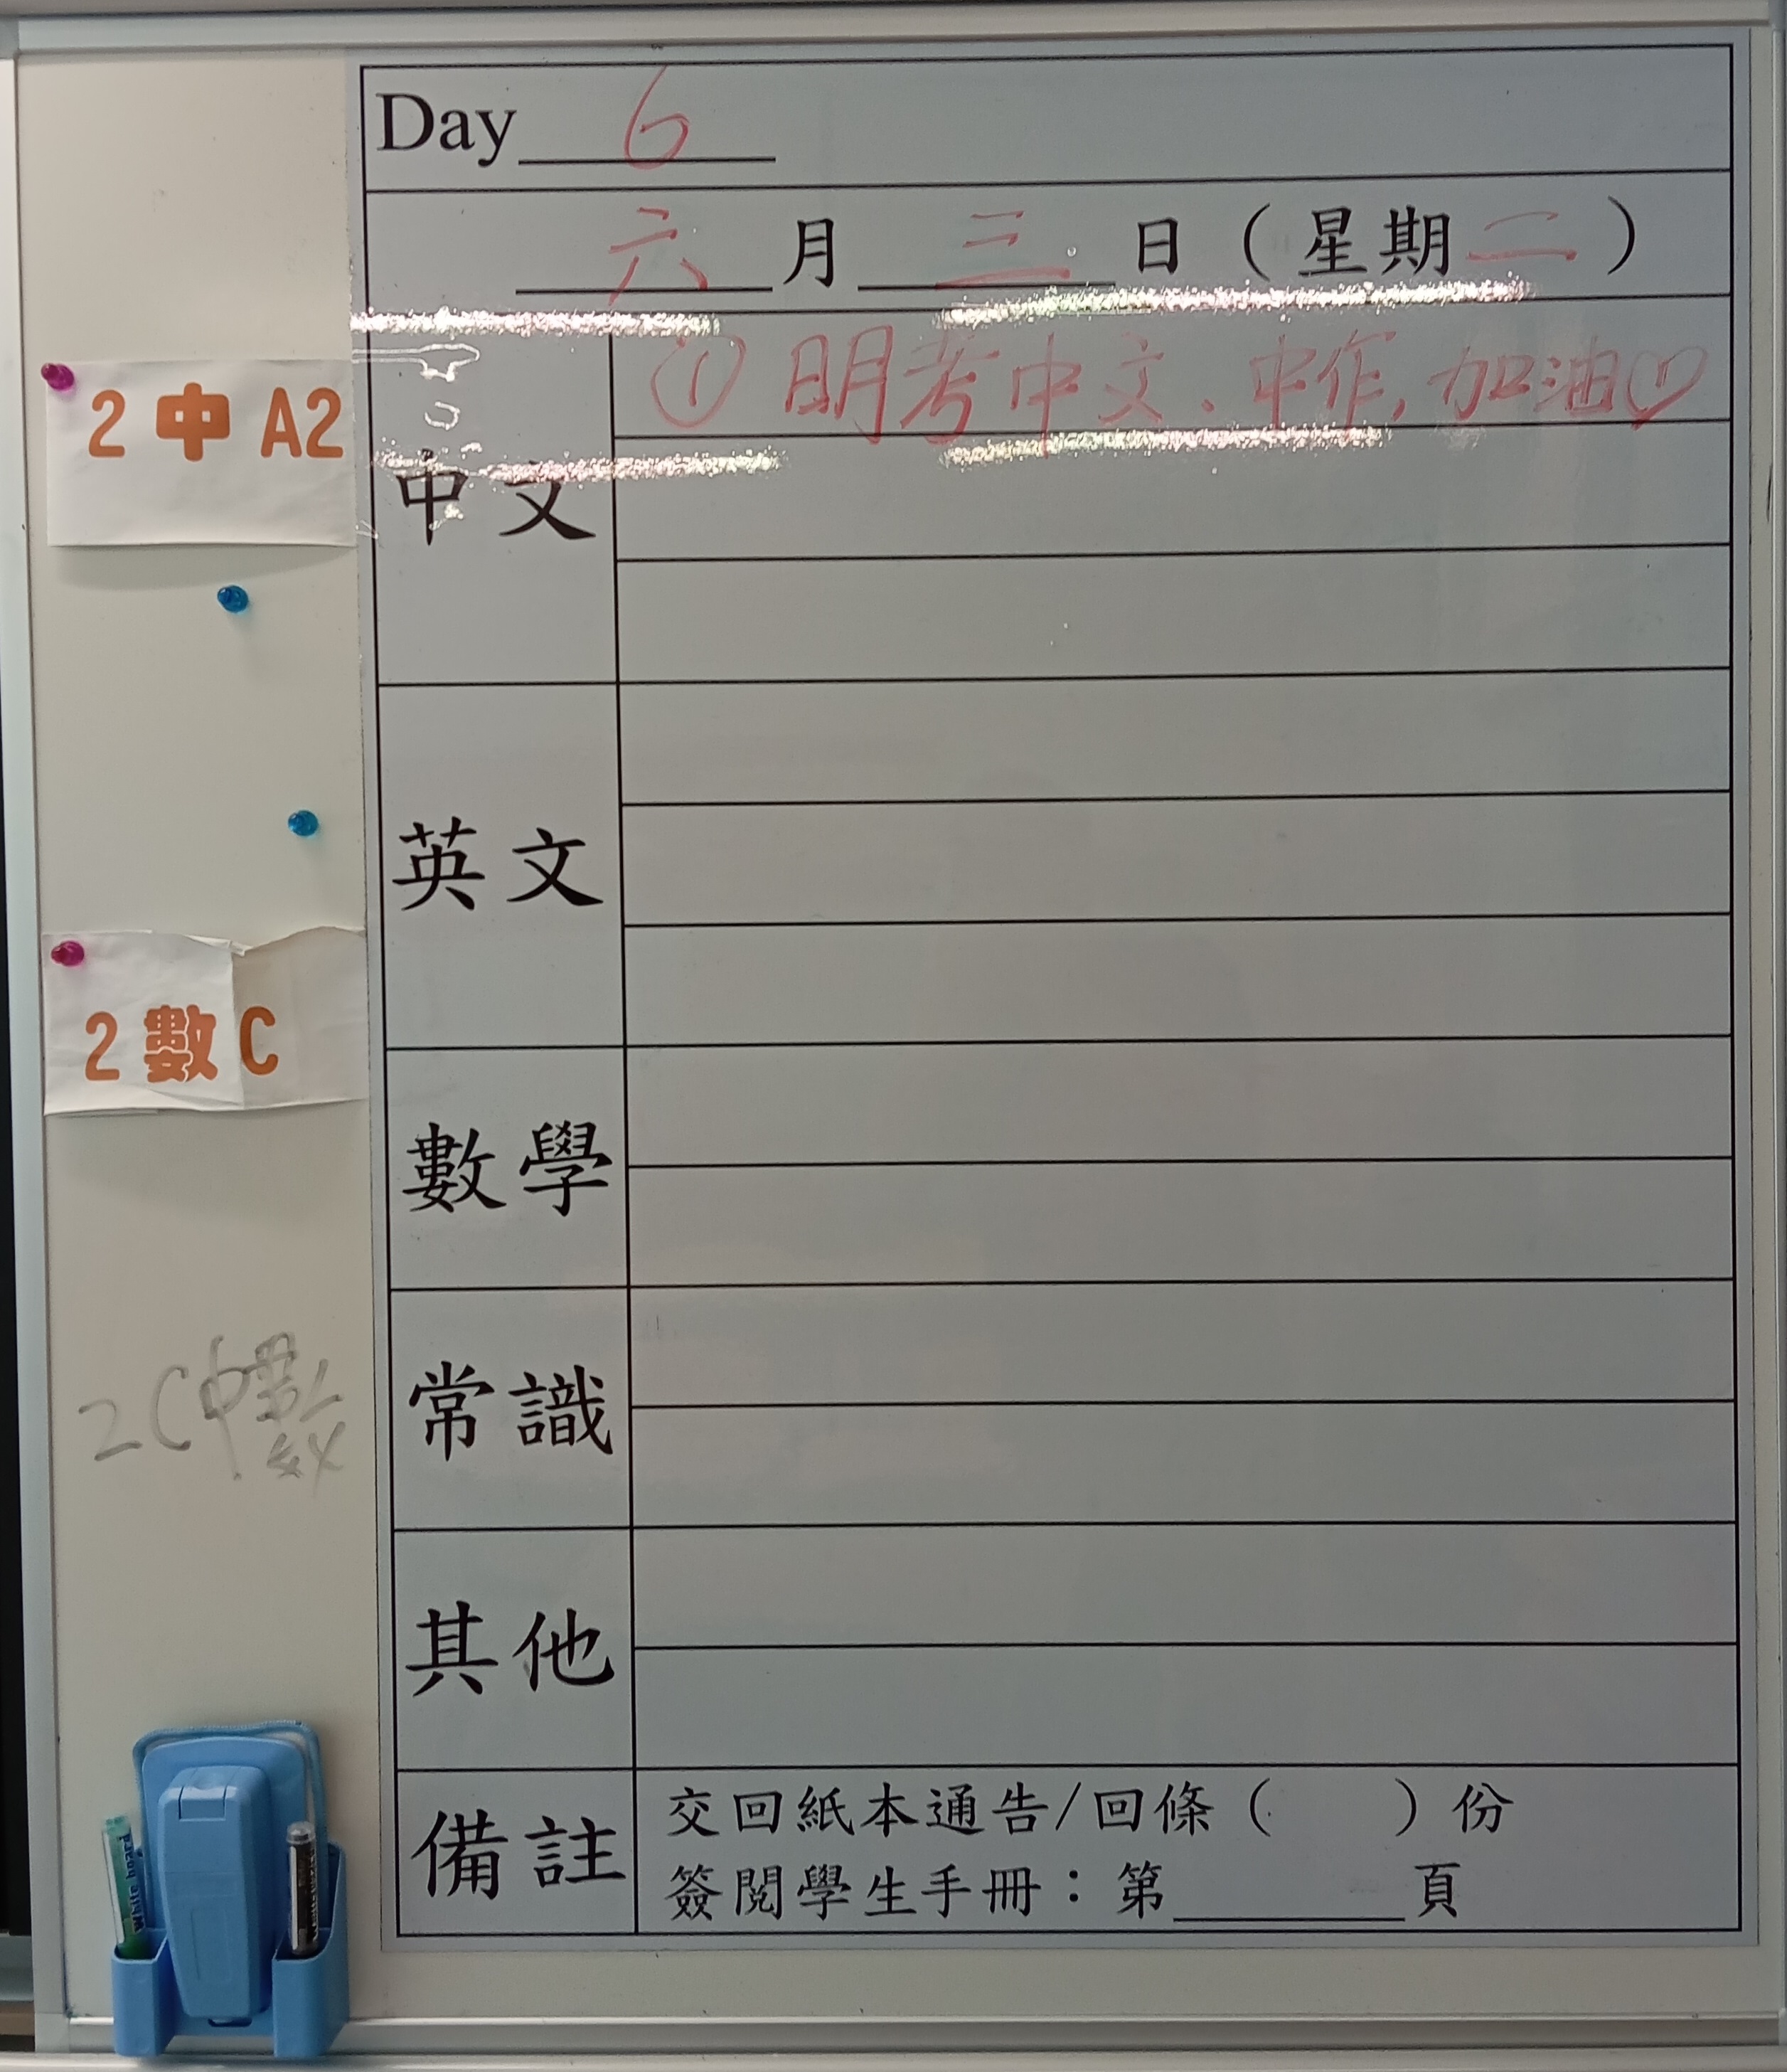 Day 6
六月三日（星期二）
2 中 A2
中文
① 明考中文、中作, 加油
英文
2 數 C
數學
2C中數
常識
其他
備註
交回紙本通告/回條（ ）份
簽閱學生手冊：第____頁